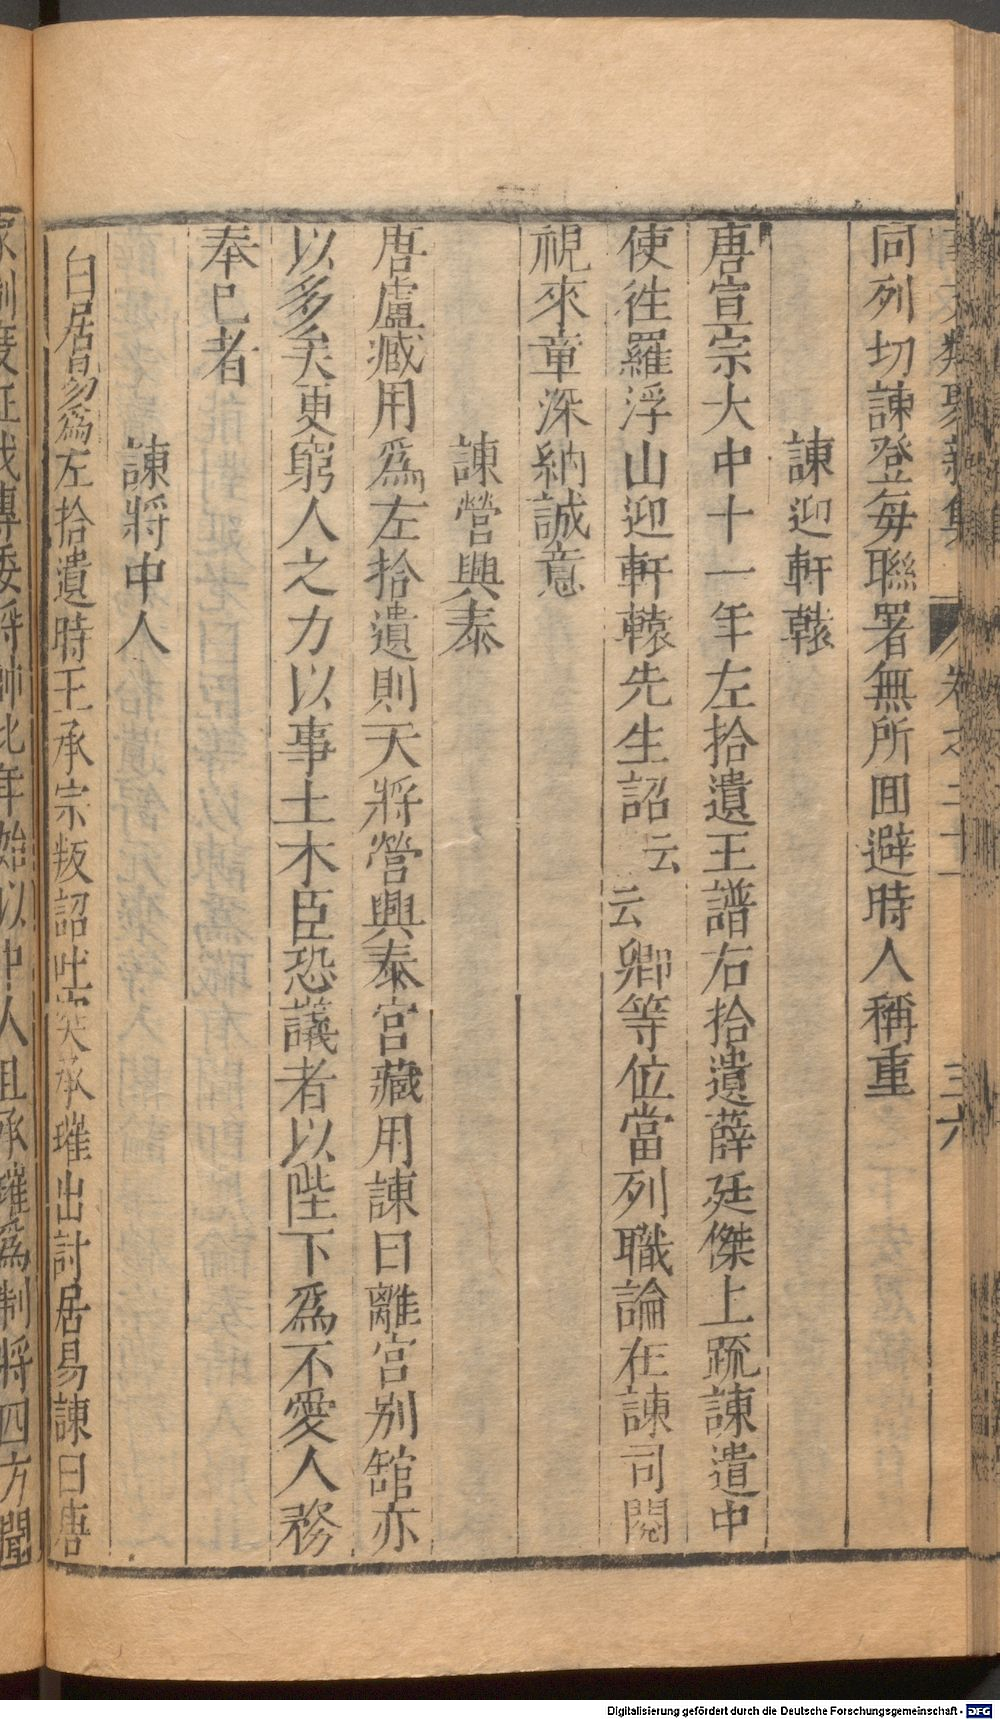 同列切諫登每聯署無所囬避時人稱重
諫迎軒轅
唐宣宗大中十一年左拾遺王譜右拾遺薛廷傑上疏諫遣中
使徃羅浮山迎軒轅先生詔云云卿等位當列職論在諫司閱
視來章深納誠意
諫營興泰
唐盧藏用爲左拾遺則天將營興泰宫藏用諫曰離宫别館亦
以多矣更窮人之力以事土木臣恐議者以陛下爲不愛人務
奉巳者
諫將中人
白居易爲左拾遺時王承宗叛詔吐突承璀出討居易諫曰唐
家制度征伐專委將帥比年始以中人且承璀爲制將四方聞
三六
Digitalisierung gefördert durch die Deutsche Forschungsgemeinschaft - DFG